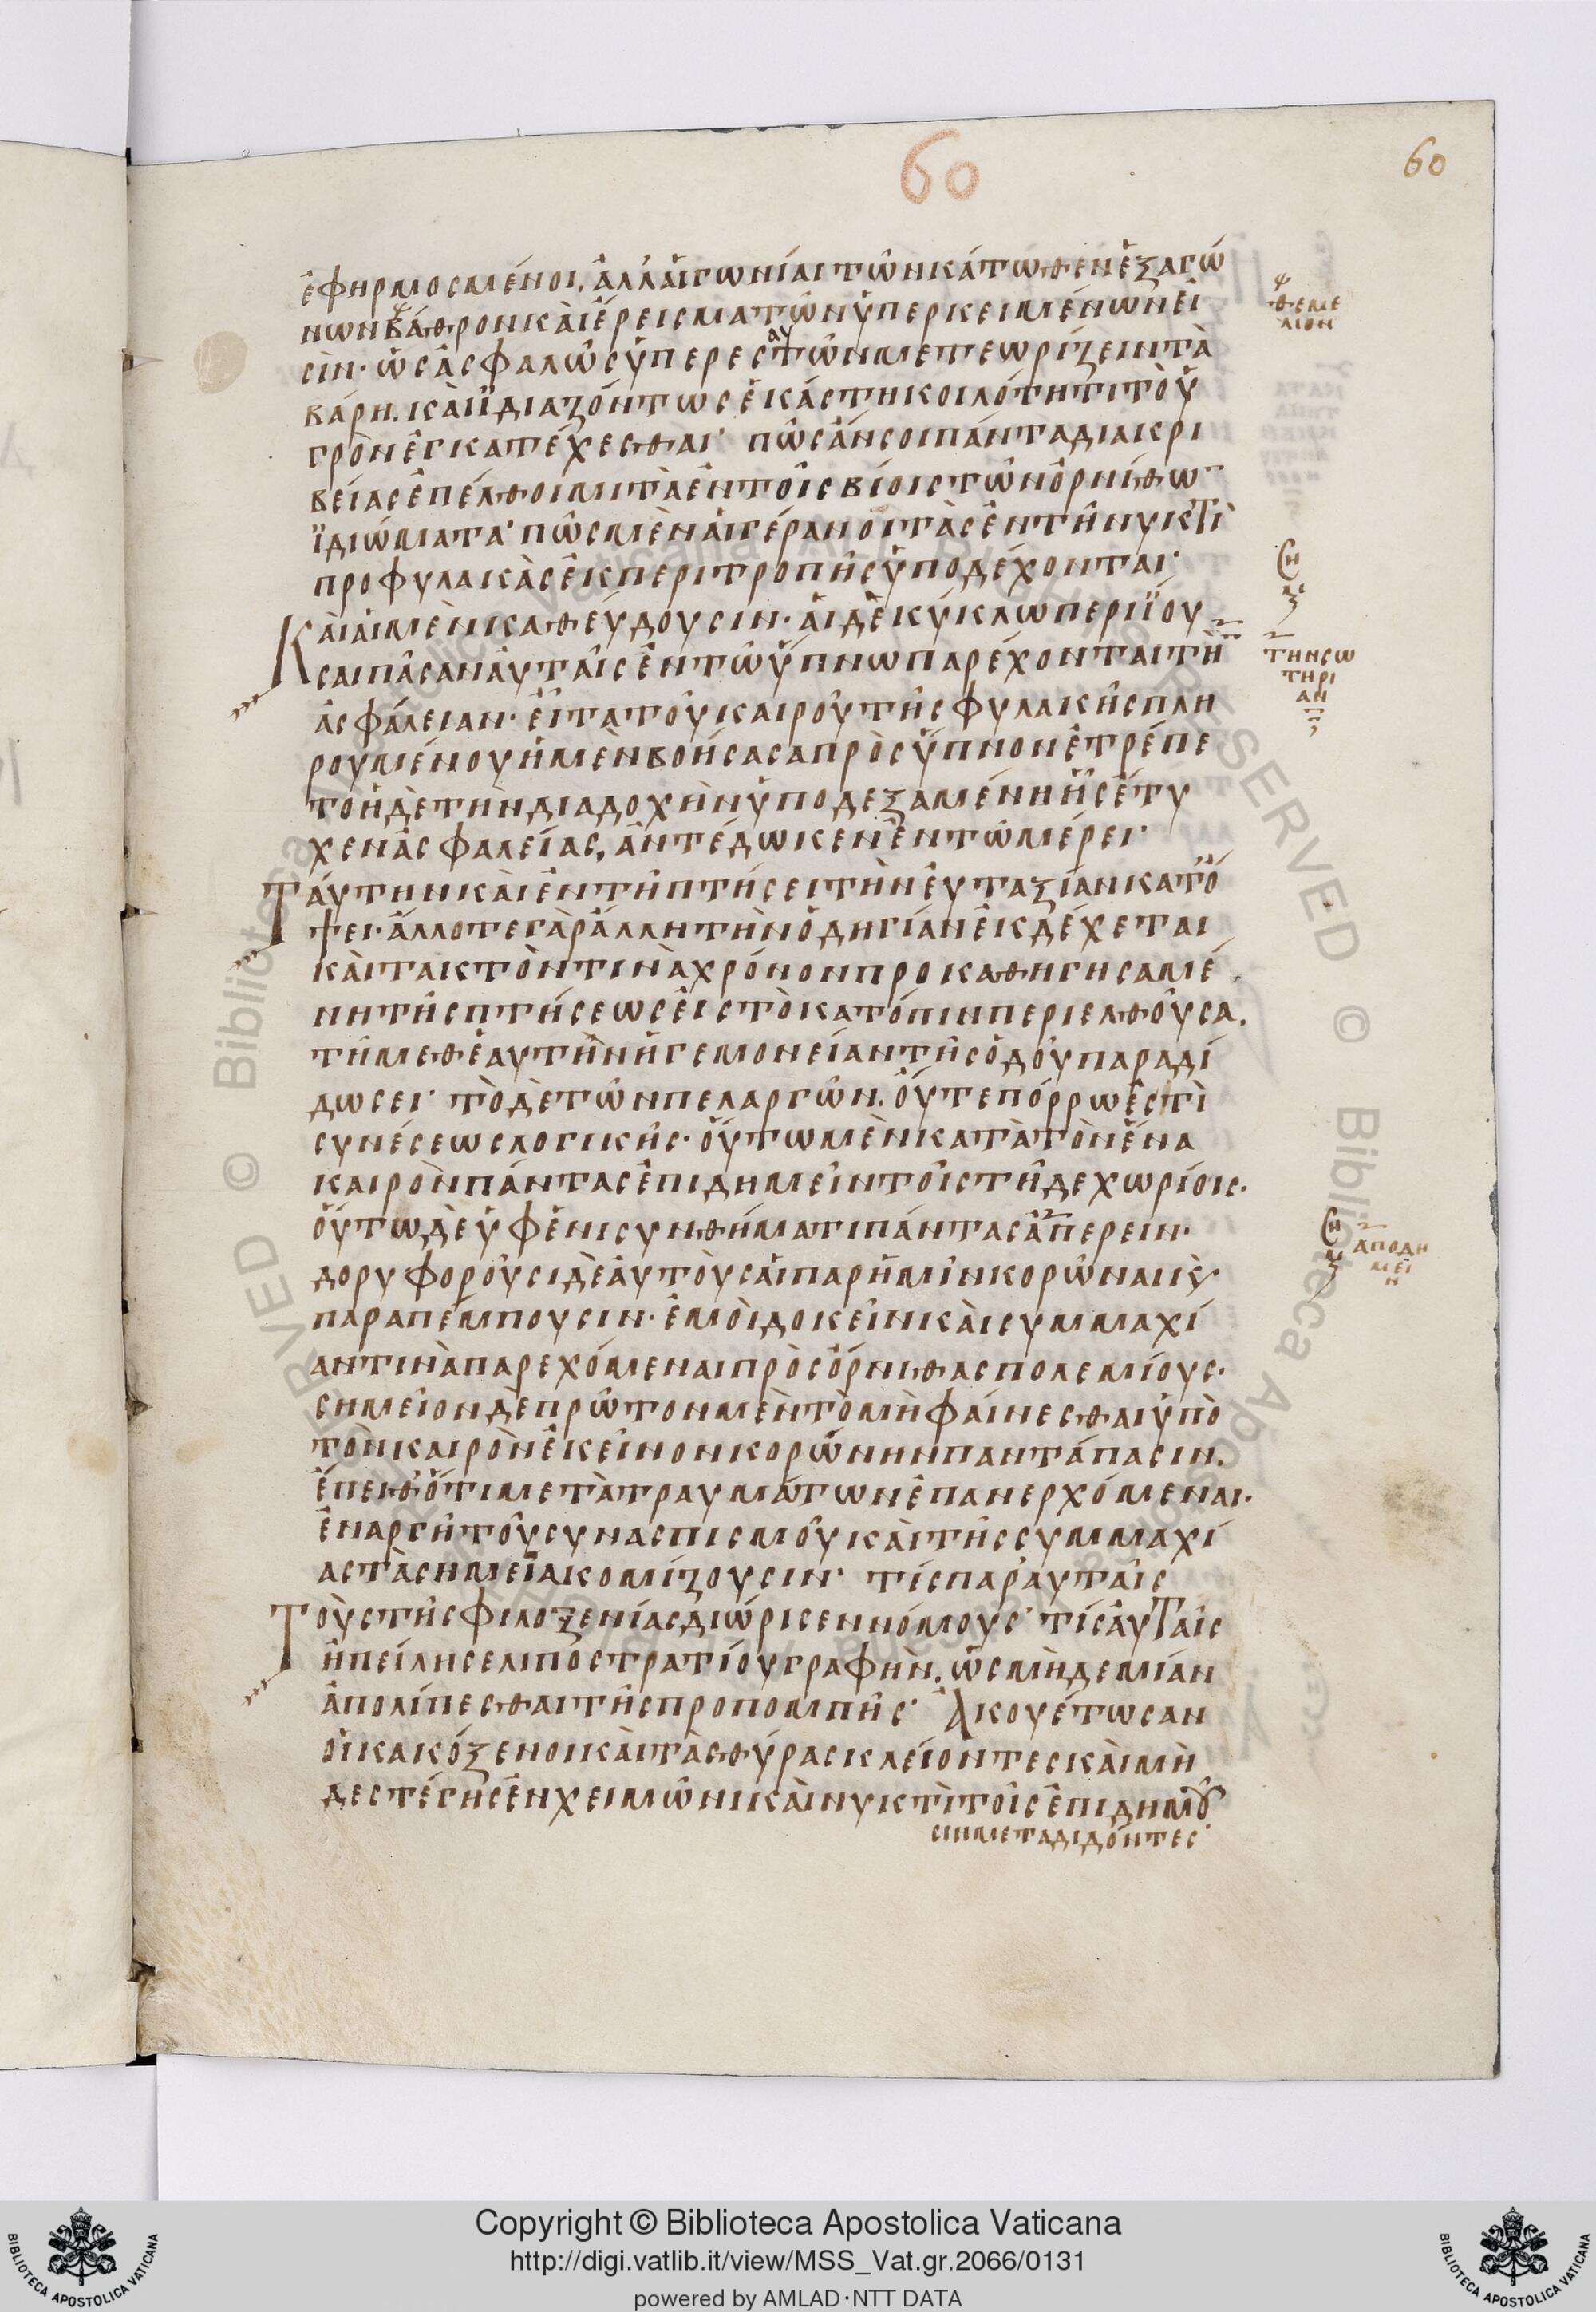 60
60
ἐφηρμοσμένοι, ἀλλ' αἱ γωνίαι τῶν κάτωθεν ἑξαγώ
νων βάθρον καὶ ἔρεισμα τῶν ὑπερκειμένων εἰ
σίν· ὡς ἀσφαλῶς ὑπὲρ ἑαυτῶν μετεωρίζειν τὰ
βάρη. καὶ ἰδιαζόντως ἑκάστη κοιλότητι τὸ ὑ
γρὸν ἐγκατέχεσθαι· πῶς ἄν σοι πάντα δι' ἀκρι
βείας ἐπέλθοιμι τὰ ἐν τοῖς βίοις τῶν ὀρνίθω
ϊδιώματα· πῶς μὲν αἱ γέρανοι τὰς ἐν τῆ νυκτὶ
προφυλακὰς ἐκ περιτροπῆς ὑποδέχονται·
Καὶ αἱ μὲν καθεύδουσιν· αἱ δὲ κύκλω περιϊοῦ
σαι πᾶσαν αὐταῖς ἐν τῶ ὕπνω παρέχονται τὴν
ἀσφάλειαν· εἶτα τοῦ καιροῦ τῆς φυλακῆς πλη
ρουμένου ἡ μὲν βοήσασα πρὸς ὕπνον ἐτρέπε
το ἡ δὲ τὴν διαδοχὴν ὑποδεξαμένη ἧς ἔτυ
χεν ἀσφαλείας, ἀντέδωκεν ἐν τῶ μέρει·
Ταύτην καὶ ἐν τῆ πτήσει τὴν εὐταξίαν κατό
ψει· ἄλλοτε γὰρ ἄλλη τὴν ὁδηγίαν ἐκδέχεται
καὶ τακτόν τινα χρόνον προκαθηγησαμέ
νη τῆς πτήσεως εἰς τὸ κατόπιν περιελθοῦσα.
τῆ μεθ' ἑαυτὴν ἡγεμονείαν τῆς ὁδοῦ παραδί
δωσει· τὸ δὲ τῶν πελαργῶν. οὔτε πόρρω ἐστὶ
συνέσεως λογικῆς· οὕτω μὲν κατὰ τὸν ἕνα
καιρὸν πάντας ἐπιδημεῖν τοῖς τῆδε χωρίοις·
οὕτω δὲ ὑφ' ἑνὶ συνθήματι πάντας ἀπερεῖν·
δορυφοροῦσι δὲ αὐτοὺς αἱ παρ' ἡμῖν κορῶναι κ(αὶ)
παραπέμπουσιν· ἐμοὶ δοκεῖν καὶ συμμαχί
αν τινὰ παρεχόμεναι πρὸς ὄρνιθας πολεμίους·
σημεῖον δὲ πρῶτον μὲν τὸ μὴ φαίνεσθαι ὑπὸ
τὸν καιρὸν ἐκεῖνον κορώνην παντάπασιν.
ἔπειθ' ὅτι μετὰ τραυμάτων ἐπανερχόμεναι·
ἐναργῆ τοῦ συνασπισμοῦ καὶ τῆς συμμαχί
ας τὰ σημεῖα κομίζουσιν· τίς παρ' αὐταῖς
Τοὺς τῆς φιλοξενίας διώρισεν νόμους· τίς αὐταῖς
ἠπείλησε λιποστρατίου γραφὴν. ὡς μηδεμίαν
ἀπολίπεσθαι τῆς προπομπῆς· Ἀκουέτωσαν
οἱ κακόξενοι καὶ τὰς θύρας κλείοντες καὶ μὴ
δὲ στέγης ἐν χειμῶνι καὶ νυκτὶ τοῖς ἐπιδημοῦ
σιν μεταδιδόντες·
θεμέ
λιον
τὴν σω
τηρί
αν
ἀποδη
μεῖ
ν
Copyright © Biblioteca Apostolica Vaticana
http://digi.vatlib.it/view/MSS_Vat.gr.2066/0131
powered by AMLAD·NTT DATA
BIBLIOTECA APOSTOLICA VATICANA
BIBLIOTECA APOSTOLICA VATICANA